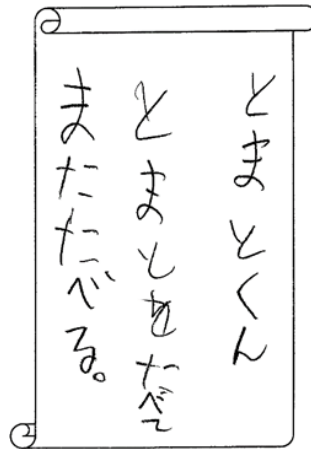 とまとくん
とまとをたべて
またたべる。